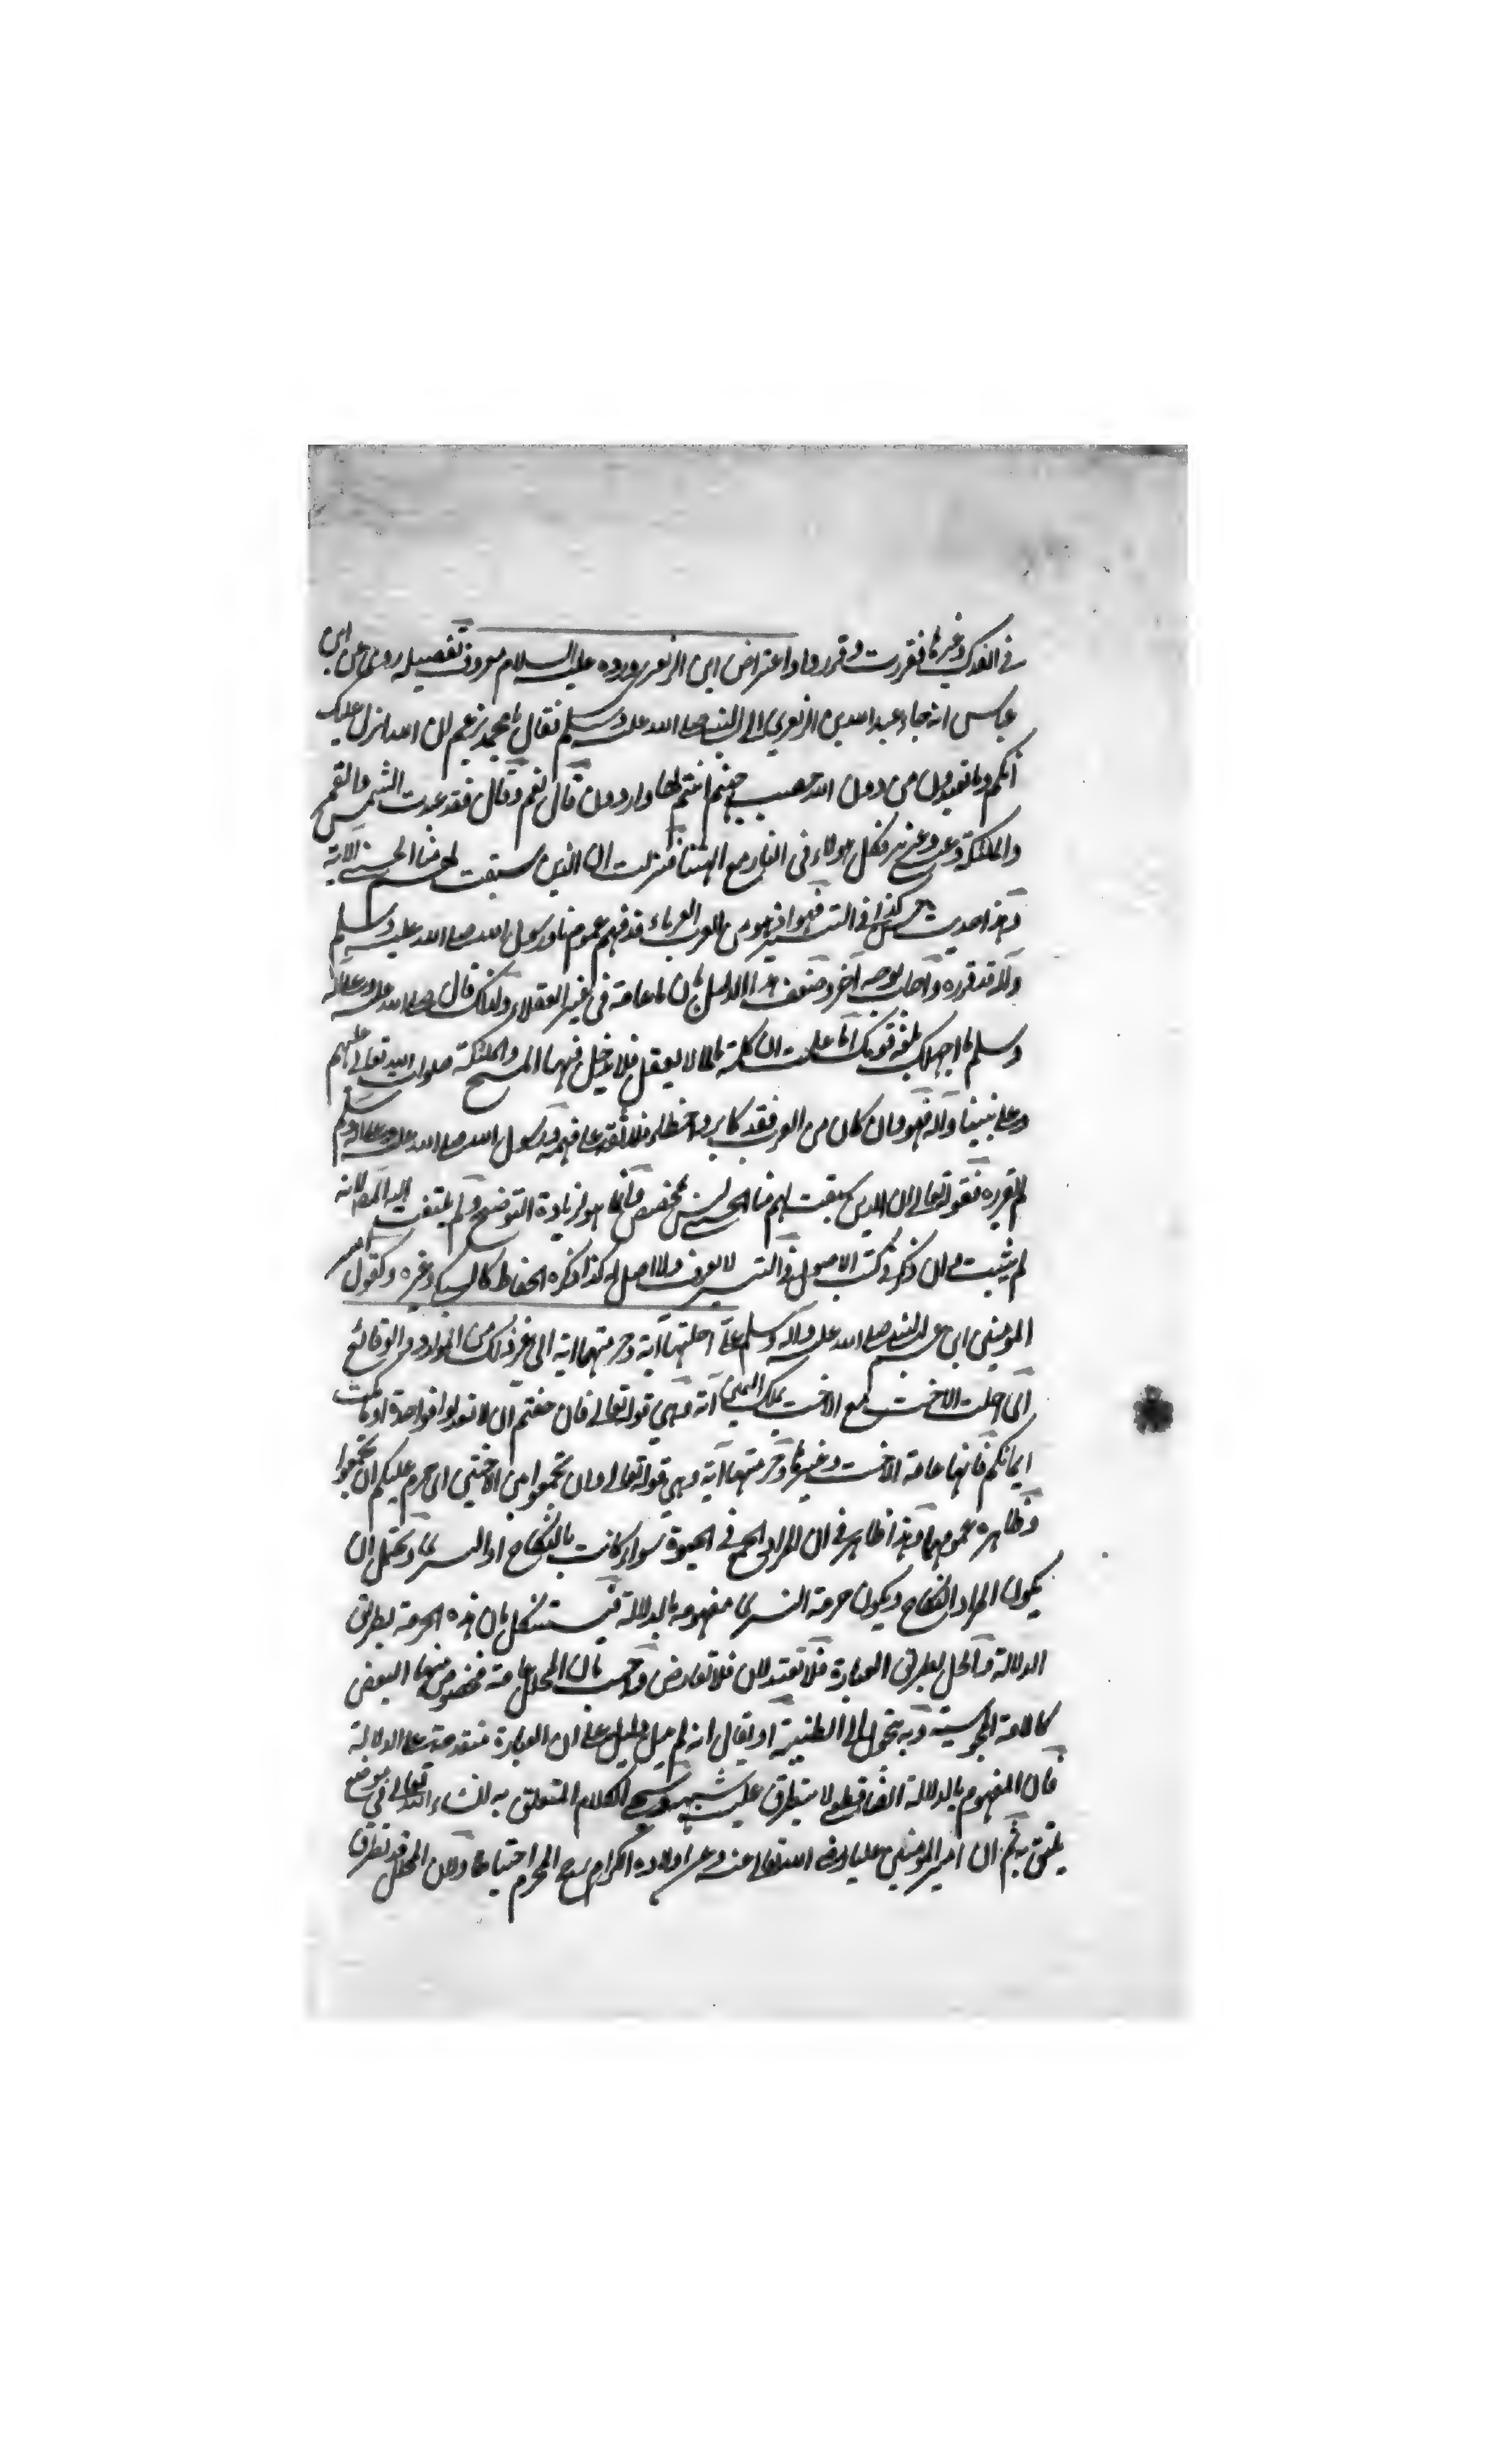 في الفدك وغيرها فقررت وقرروا واعتراض ابن الزبعرى ورده عليه السلام معروف تفصيله روى عن ابن
عباس انه جاء عبد الله بن الزبعرى الى النبي صلى الله عليه وسلم فقال يا محمد تزعم ان الله انزل عليك
انكم وما تعبدون من دون الله حصب جهنم انتم لها واردون قال نعم وقال فقد عبدت الشمس والقمر
والملئكة وعيسى وعزير فكل هولاء في النار مع الهتنا فنزلت ان الذين سبقت لهم منا الحسنى الاية
وهذا حديث حسن كذا في التيسير فهو من العرب العرباء قد فهم عموم ما ورسول الله صلى الله عليه وسلم
وآله قد قرره واجاب بوجه آخر وضعف هذا الدليل بان ما عامة في غير العقلاء ولذلك قال صلى الله عليه وعلى آله
وسلم ما اجهلك بلغة قومك اما علمت ان كلمة ما لما لا يعقل فلا يدخل فيها المسيح والملئكة صلوات الله تعالى عليهم
وعلى نبينا وآله فهو وان كان من العرب فقد كابر واخطا فلا نقد على فهمه ورسول الله صلى الله عليه وعلى آله وسلم
لم يقرره فقوله تعالى ان الذين سبقت لهم منا الحسنى ليس بمخصص وانما هو لزيادة التوضيح ولم يلتفت اليه المص لانه
لم يثبت وان ذكر في كتب الاصول في التيسير لا يعرف ولا اصل له كذا ذكره الحفاظ كالسبكي وغيره وكقول امير
المومنين ابن عم النبي صلى الله عليه وآله وسلم علي احلتهما آية وحرمتهما اية الى غير ذلك من الموارد والوقائع
اى احلت الاخت مع الاخت بملك اليمين آية وهي قوله تعالى فان خفتم ان لا تعدلوا فواحدة او ما ملكت
ايمانكم فانها عامة الاخت وغيرها وحرمتهما آية وهي قوله تعالى وان تجمعوا بين الاختين اى حرم عليكم ان تجمعوا
وظاهره عمومها وهذا ظاهر في ان المراد الجمع في الحيوة سواء كانت بالنكاح او التسرى ويحتمل ان
يكون المراد النكاح ويكون حرمة التسرى مفهومة بالدلالة فيستشكل بان هذه الحرمة بطريق
الدلالة والحل بطريق العبارة فلا تعتدلان فلا تعارض واجيب بان المحلل عامة مخصوص منها البعض
كالامة المجوسية وبه يتحول الى الظنية او يقال انه لم يدل دليل على ان العبارة متقدمة على الدلالة
فان المفهوم بالدلالة ايضا قطعي لا يتطرق عليه شبهة وسيجيء الكلام المتعلق به ان شاء الله تعالى في موضع
يليق به ثم ان امير المومنين عليا رضى الله تعالى عنه وعن اولاده الكرام رجح المحرم احتياطا ولان المحلل قد تطرق